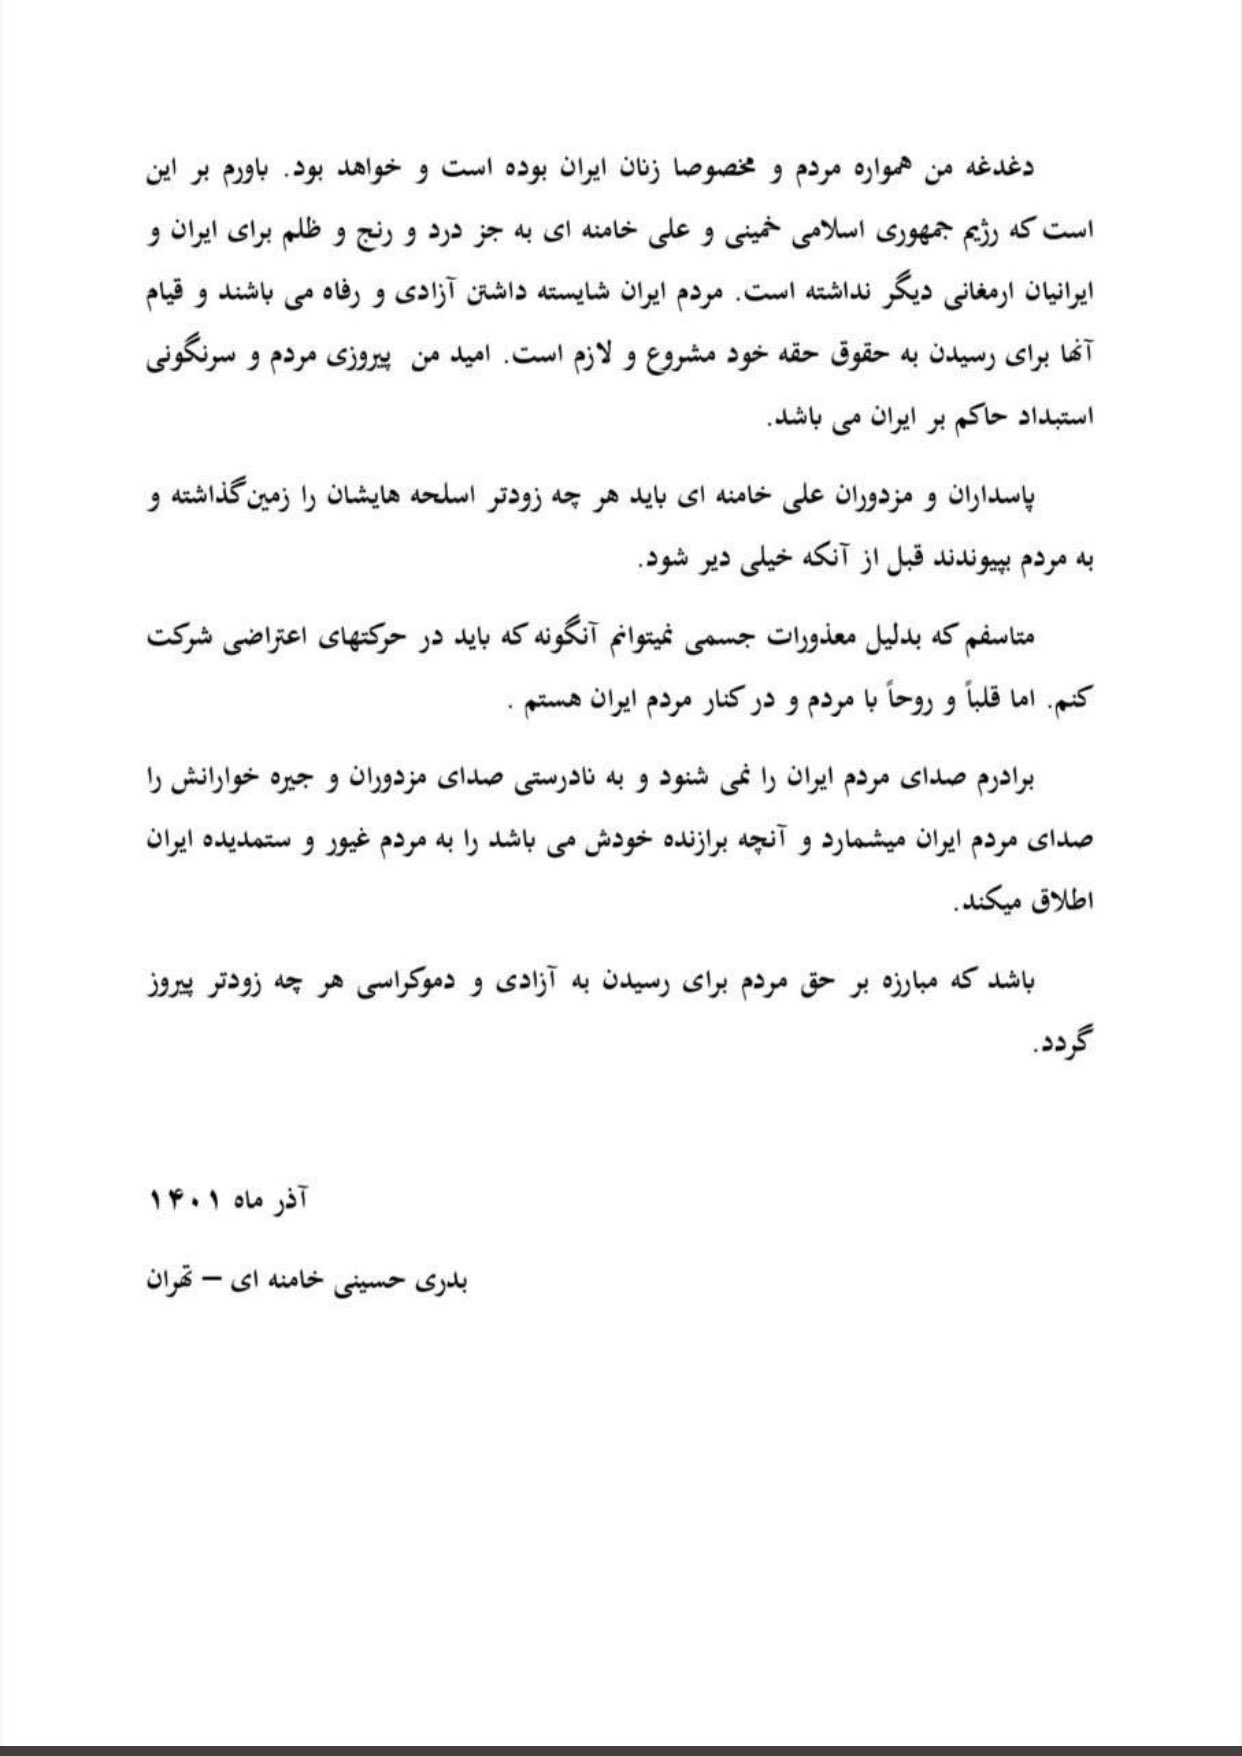 دغدغه من همواره مردم و مخصوصا زنان ایران بوده است و خواهد بود. باورم بر این
است که رژیم جمهوری اسلامی خمینی و علی خامنه ای به جز درد و رنج و ظلم برای ایران و
ایرانیان ارمغانی دیگر نداشته است. مردم ایران شایسته داشتن آزادی و رفاه می باشند و قیام
آنها برای رسیدن به حقوق حقه خود مشروع و لازم است. امید من پیروزی مردم و سرنگونی
استبداد حاکم بر ایران می باشد.
پاسداران و مزدوران علی خامنه ای باید هر چه زودتر اسلحه هایشان را زمین گذاشته و
به مردم بپیوندند قبل از آنکه خیلی دیر شود.
متاسفم که بدلیل معذورات جسمی نمیتوانم آنگونه که باید در حرکتهای اعتراضی شرکت
کنم. اما قلباً و روحاً با مردم و در کنار مردم ایران هستم .
برادرم صدای مردم ایران را نمی شنود و به نادرستی صدای مزدوران و جیره خوارانش را
صدای مردم ایران میشمارد و آنچه برازنده خودش می باشد را به مردم غیور و ستمدیده ایران
اطلاق میکند.
باشد که مبارزه بر حق مردم برای رسیدن به آزادی و دموکراسی هر چه زودتر پیروز
گردد.
آذر ماه ۱۴۰۱
بدری حسینی خامنه ای – تهران